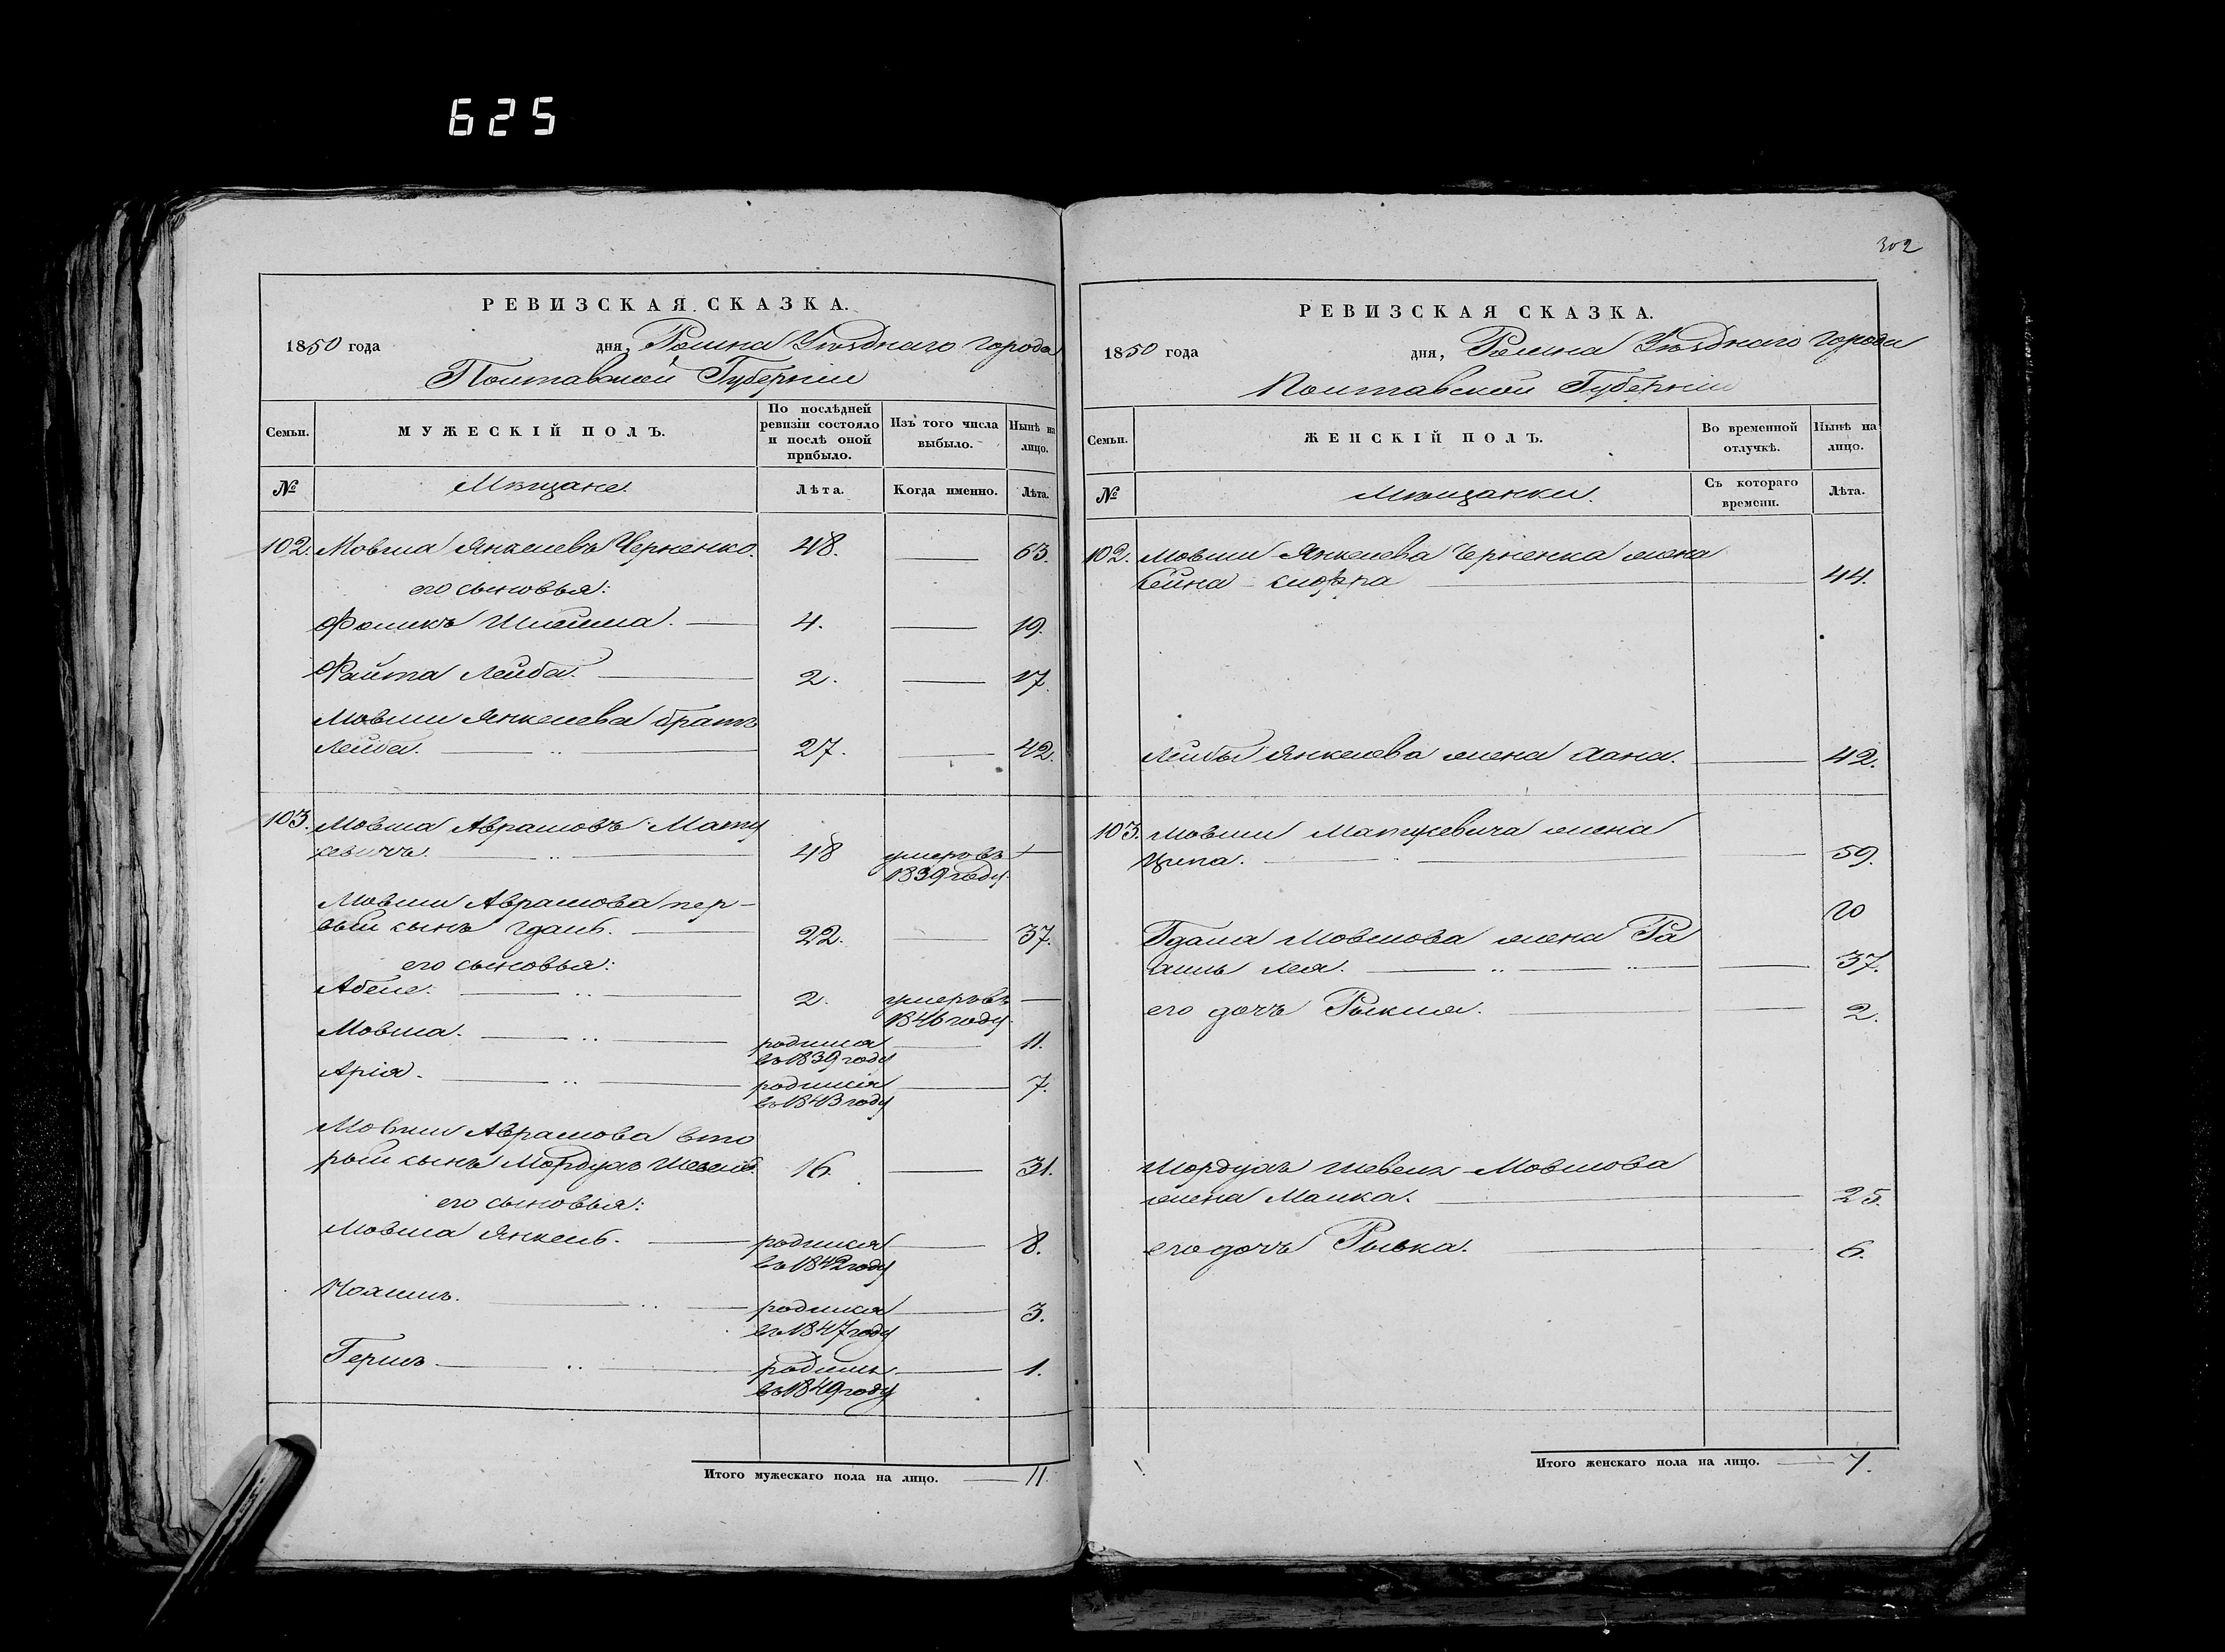 625
302
РЕВИЗСКАЯ СКАЗКА.
1850 года дня, Ромна Уѣзднаго города
Полтавской Губерніи
Семьи. МУЖЕСКІЙ ПОЛЪ. По послѣдней ревизіи состояло и послѣ оной прибыло. Изъ того числа выбыло. Нынѣ на лицо.
№ Мѣщане. Лѣта. Когда именно. Лѣта.
102. Мовша Янкелевъ Черненко. 48. 63.
его сыновья:
Фоликъ Шлёма. 4. 19.
Файта Лейба. 2. 17.
Мовши Янкелева братъ
Лейба. 27. 42.
103. Мовша Аврамовъ Мату
кевичъ. 48 умеръ въ
1839 году.
Мовши Аврамова пер-
вый сынъ Гдаль. 22. 37.
его сыновья:
Абель. 2. умеръ въ
1846 году.
Мовша. родился 11.
въ 1839 году
Арія. родился 7.
въ 1843 году
Мовши Аврамова вто
рый сынъ Мордухъ Шевель. 16. 31.
его сыновья:
Мовша Янкель. родился 8.
въ 1842 году
родился 3.
въ 1847 году
Гершъ. родилъ. 1.
въ 1849 году
Итого мужескаго пола на лицо. 11.
РЕВИЗСКАЯ СКАЗКА.
1850 года дня, Ромна Уѣзднаго города
Полтавской Губерніи
Семьи. ЖЕНСКІЙ ПОЛЪ. Во временной отлучкѣ. Нынѣ на лицо.
№ Мѣщанки. Съ котораго времени. Лѣта.
102. Мовши Янкелева Черненка жена
44.
Лейбы Янкелева жена Хана. 42.
103. Мовши Матукевича жена
Ципа. 59.
Гдаля Мовшова жена Ра
хиль Лея. 37.
его дочь 2.
Мордуха Шевеля Мовшова
жена Малка. 25.
его дочь Рывка. 6.
Итого женскаго пола на лицо. 7.